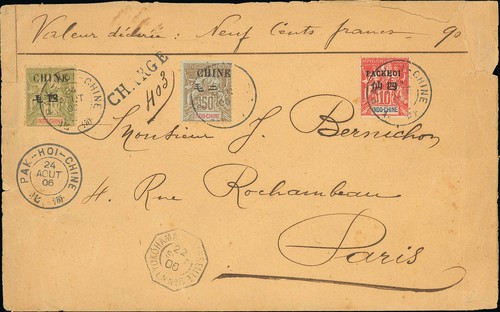 Valeur déclarée : Neuf Cents francs 90
CHINE
CHARGÉ
403
CHINE
50
INDO-CHINE
PACKHOI
10
INDO-CHINE
Monsieur J. Bernichon
PAK-HOI-CHINE
24
AOUT
06
4 Rue Rochambeau
Paris
YOKOHAMA
22
06